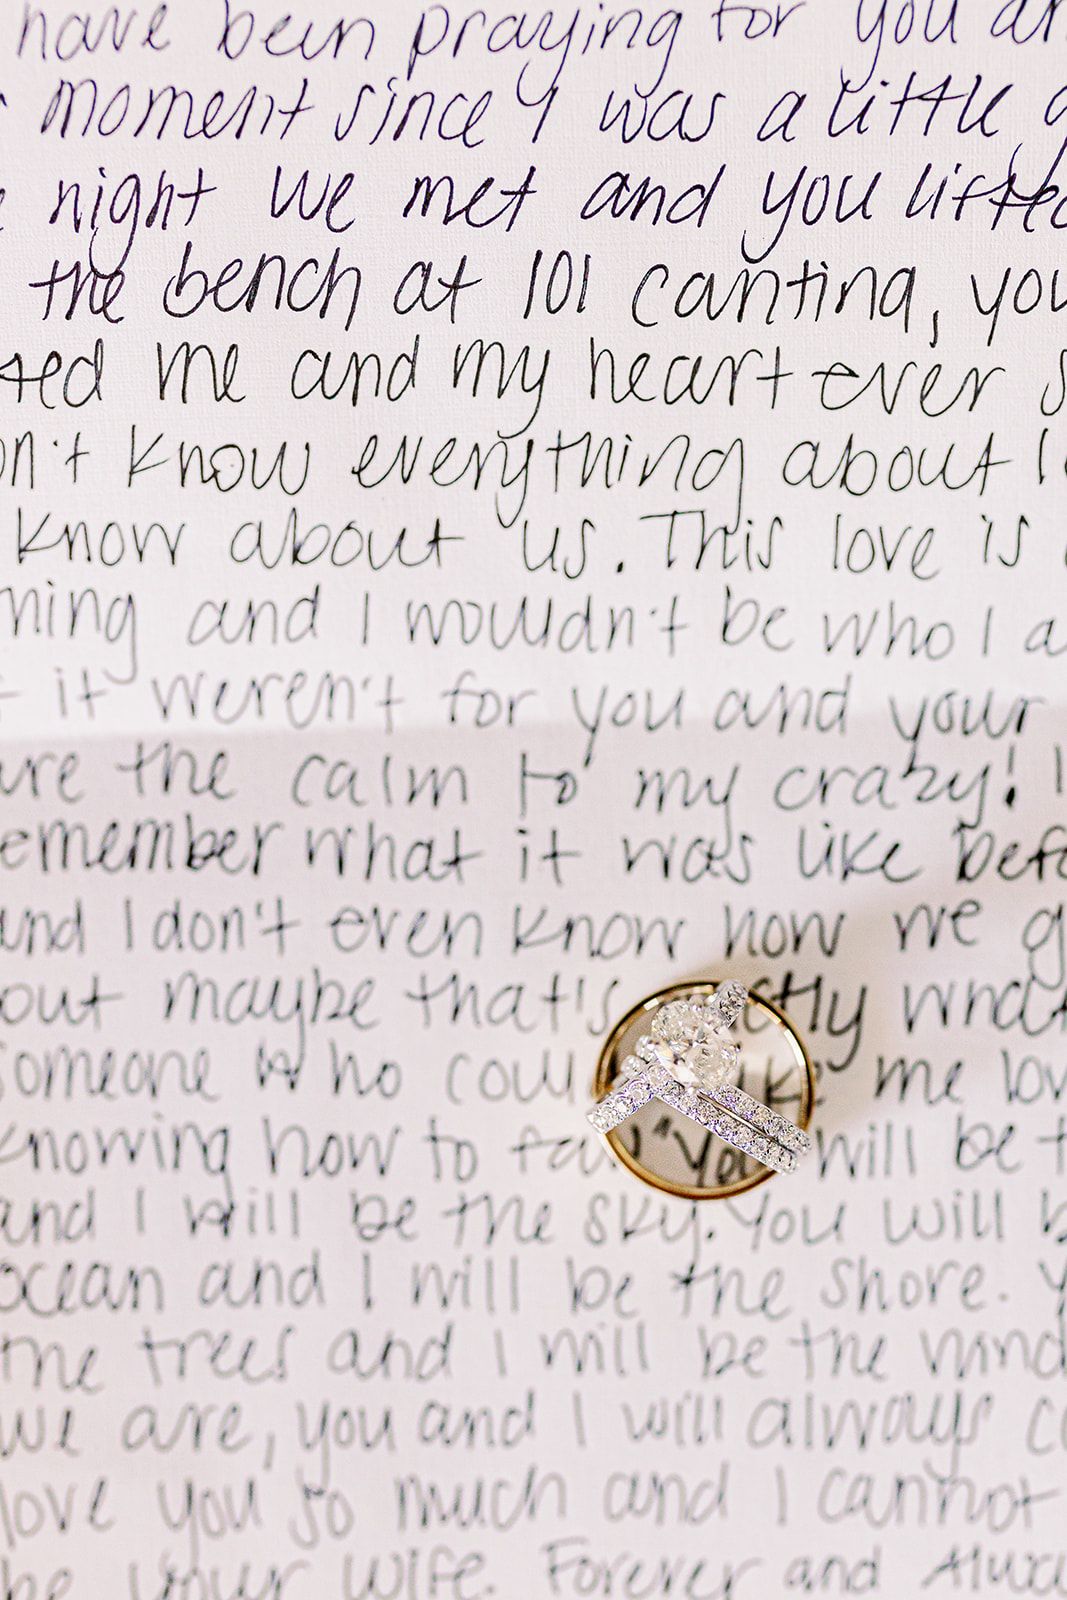 have been praying for you an
moment since I was a little g
night we met and you lifted
the bench at 101 cantina, you
ted me and my heart ever s
on't know everything about l
know about us. This love is
ning and I wouldn't be who I a
it weren't for you and your
are the calm to my crazy! I
emember what it was like befo
and I don't even know how we g
but maybe that's what
someone who me lov
knowing how to "You will be t
and I will be the sky. You will b
ocean and I will be the shore. Y
the trees and I will be the wind
we are, you and I will always c
love you so much and I cannot
be your wife. Forever and Alwa